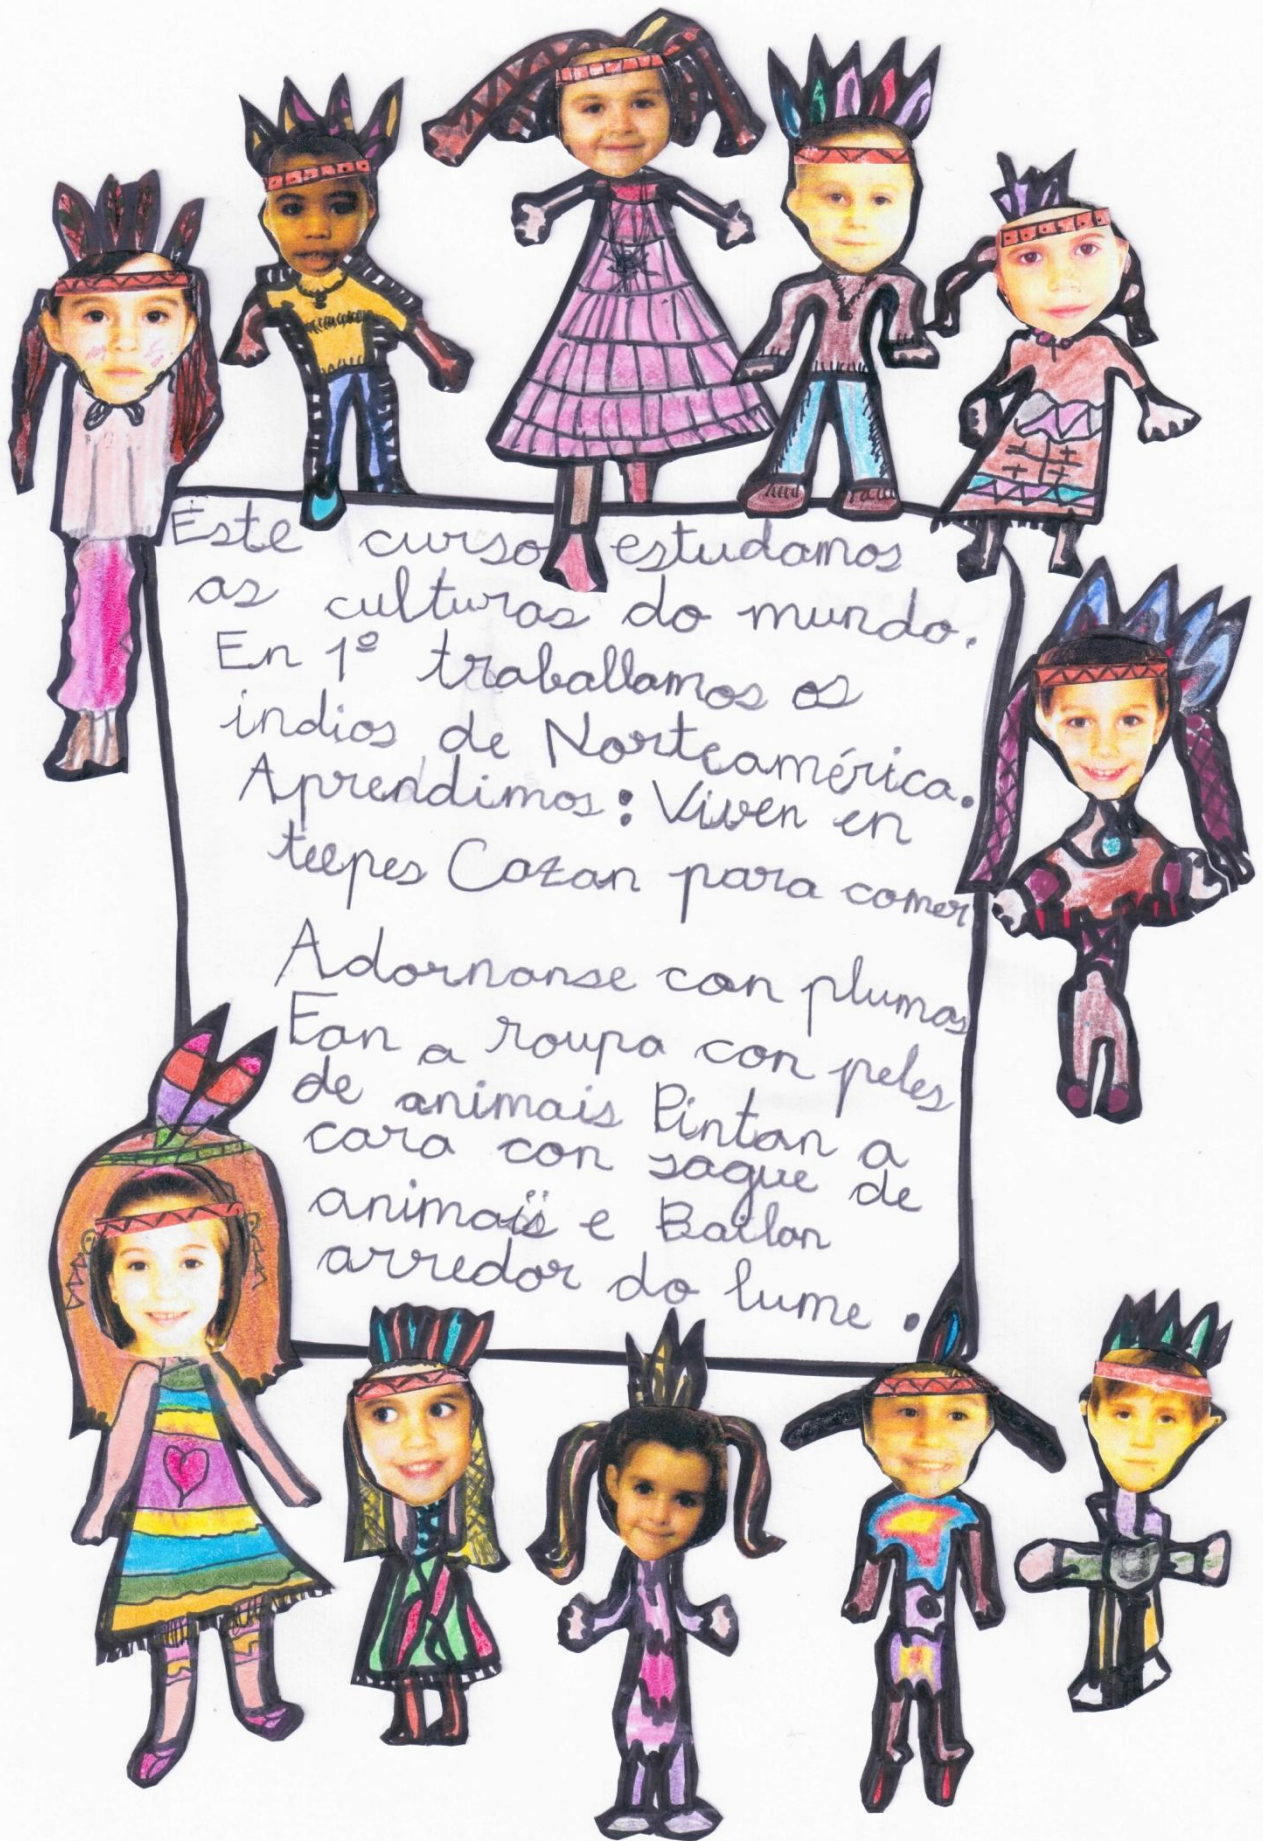 Este curso estudamos
as culturas do mundo.
En 1º traballamos os
indios de Norteamérica.
Aprendimos: Viven en
teepes Cazan para comer
Adornanse con plumas
Fan a roupa con peles
de animais Pintan a
cara con sague de
animais e Bailan
arredor do lume.